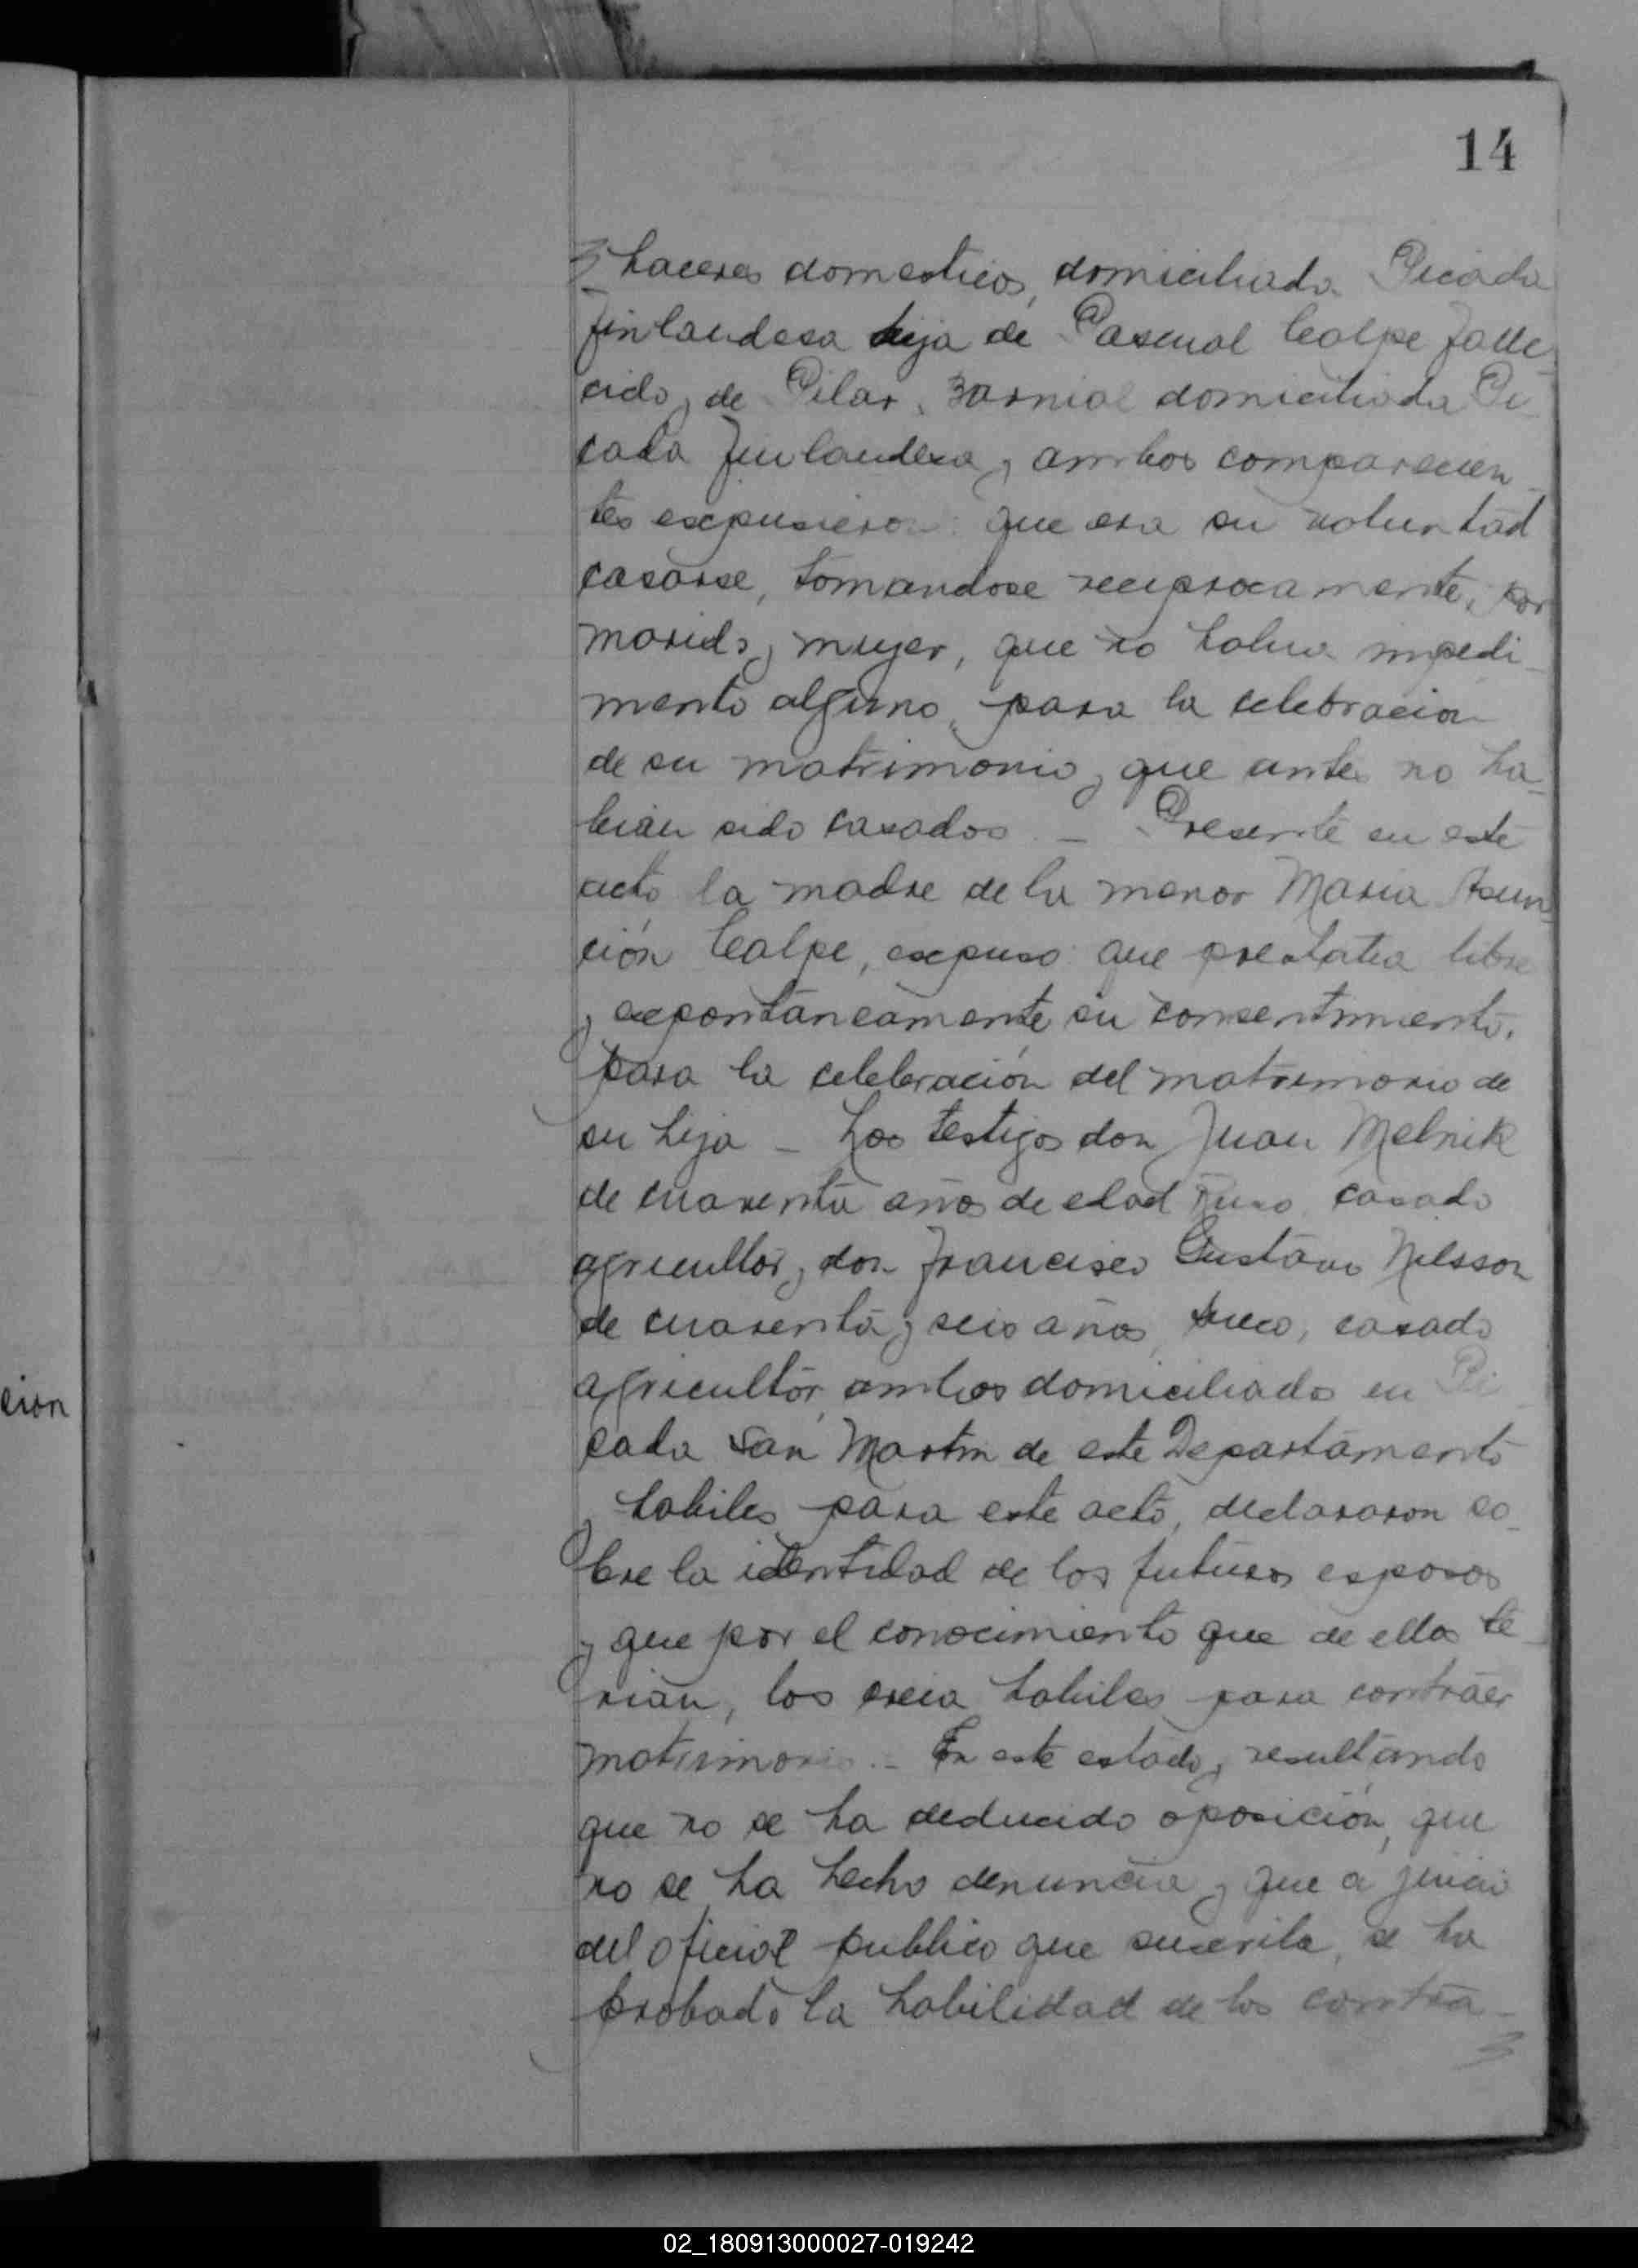 14
haceres domesticos, domiciliada Picada
finlandesa hija de Pascual Calpe falle-
cido y de Pilar domiciliada Pi-
cada finlandesa y ambos comparecien-
tes expusieron: que era su voluntad
casarse, tomandose reciprocamente, por
marido y mujer, que no habia impedi-
mento alguno, para la celebración
de su matrimonio y que antes no ha-
bian sido casados. - Presente en este
acto la madre de la menor Maria Asun-
ción Calpe, expuso: que prestaba libre
y expontáneamente su consentimiento,
para la celebración del matrimonio de
su hija - Los testigos don Juan Melnik
de cuarenta años de edad Ruso, casado
agricultor y don Francisco Gustavo Nilsson
de cuarenta y seis años, sueco, casado
agricultor, ambos domiciliados en Pi-
cada San Martin de este Departamento
y habiles para este acto, declararon so-
bre la identidad de los futuros esposos
y que por el conocimiento que de ellos te-
nian, los creia habiles para contraer
matrimonio. - En este estado y resultando
que no se ha deducido oposición, que
no se ha hecho denuncia y que a juicio
del oficial publico que suscribe, se ha
probado la habilidad de los contra-
cion
02_180913000027-019242